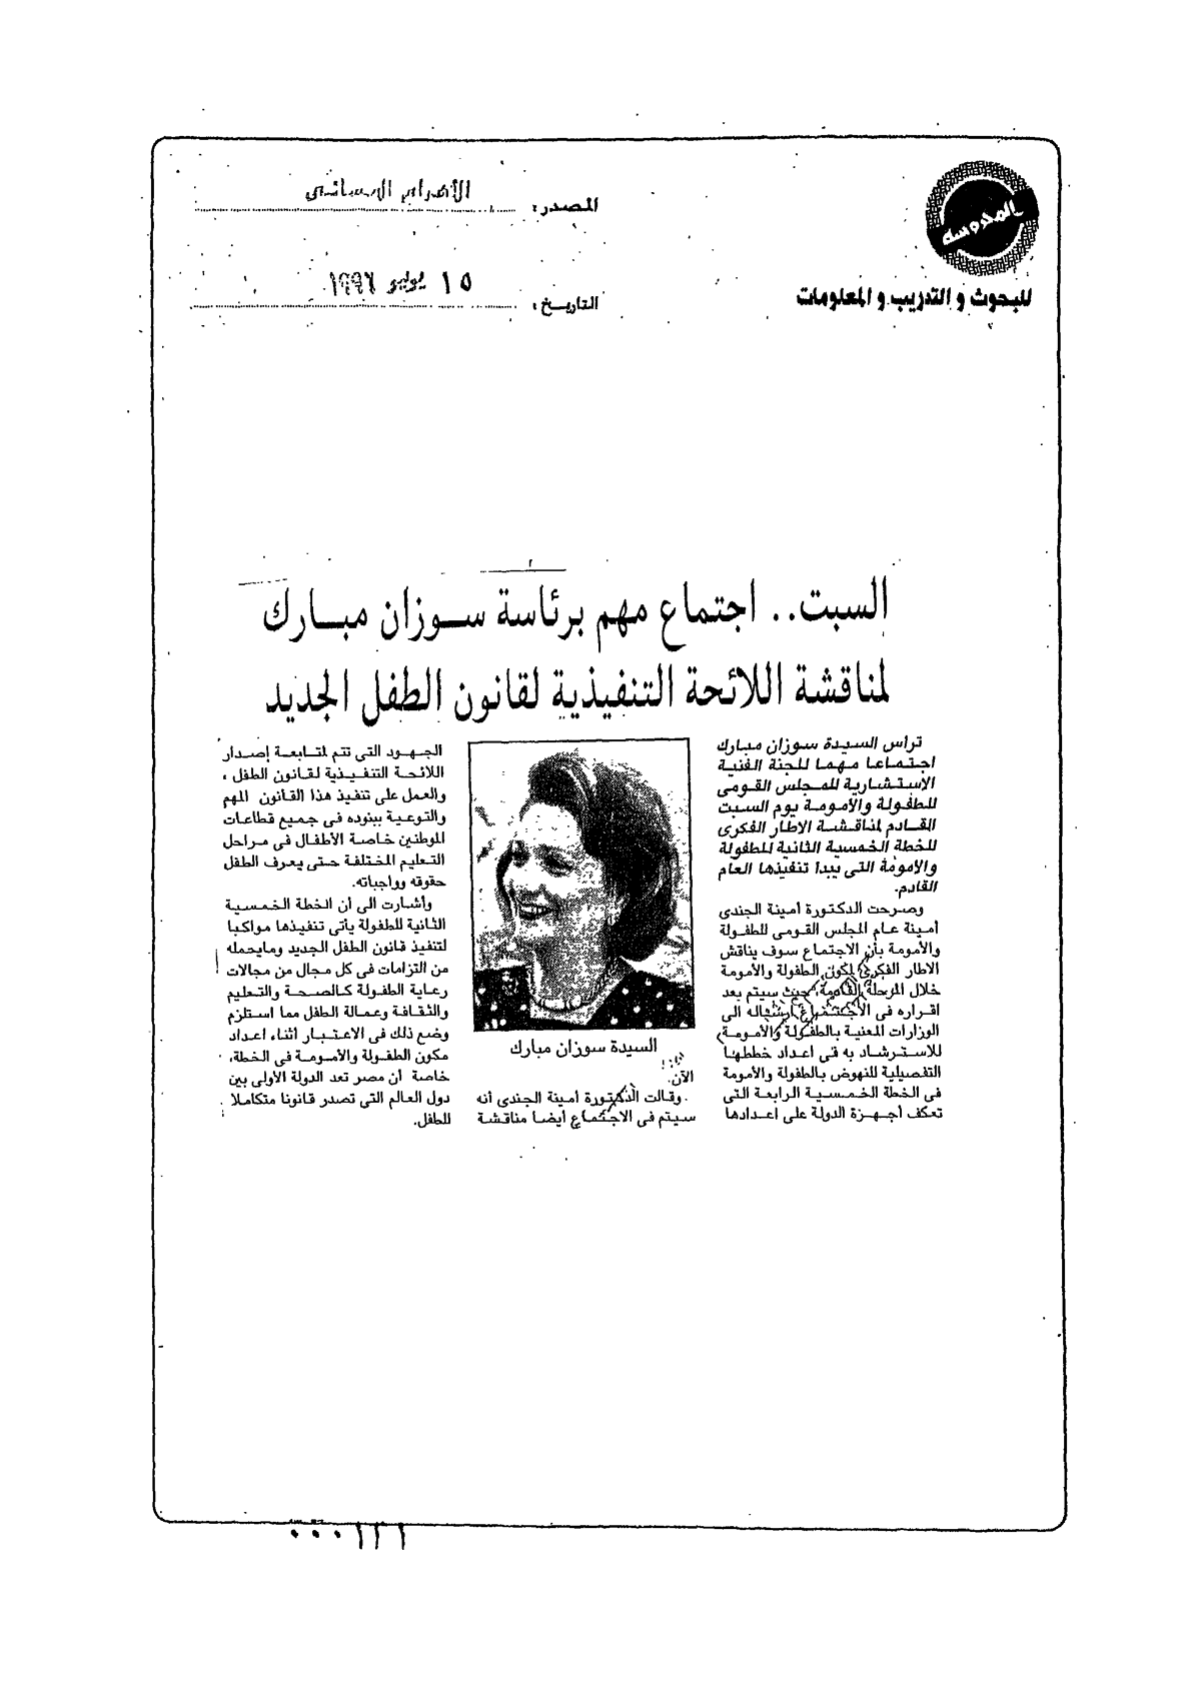 المحروسة
للبحوث و التدريب و المعلومات
المصدر: الأهرام المسائى
التاريخ: ١٥ يوليو ١٩٩٦
السبت.. اجتماع مهم برئاسة سوزان مبارك
لمناقشة اللائحة التنفيذية لقانون الطفل الجديد
ترأس السيدة سوزان مبارك
اجتماعا مهما للجنة الفنية
الإستشارية للمجلس القومى
للطفولة والأمومة يوم السبت
القادم لمناقشة الاطار الفكرى
للخطة الخمسية الثانية للطفولة
والامومة التى يبدا تنفيذها العام
القادم.
وصرحت الدكتورة أمينة الجندى
أمينة عام المجلس القومى للطفولة
والأمومة بأن الاجتماع سوف يناقش
الاطار الفكرى لمكون الطفولة والأمومة
خلال المرحلة القادمة، حيث سيتم بعد
اقراره فى الاجتماع ارساله الى
الوزارات المعنية بالطفولة والأمومة
للاسترشاد به فى اعداد خططها
التفصيلية للنهوض بالطفولة والأمومة
فى الخطة الخمسية الرابعة التى
تعكف أجهزة الدولة على اعدادها
السيدة سوزان مبارك
الآن.
وقالت الدكتورة أمينة الجندى أنه
سيتم فى الاجتماع أيضا مناقشة
الجهود التى تتم لمتابعة إصدار
اللائحة التنفيذية لقانون الطفل ،
والعمل على تنفيذ هذا القانون المهم
والتوعية ببنوده فى جميع قطاعات
الموطنين خاصة الأطفال فى مراحل
التعليم المختلفة حتى يعرف الطفل
حقوقه وواجباته.
وأشارت الى أن الخطة الخمسية
الثانية للطفولة يأتى تنفيذها مواكبا
لتنفيذ قانون الطفل الجديد ومايحمله
من التزامات فى كل مجال من مجالات
رعاية الطفولة كالصحة والتعليم
والثقافة وعمالة الطفل مما استلزم
وضع ذلك فى الاعتبار أثناء اعداد
مكون الطفولة والأمومة فى الخطة،
خاصة أن مصر تعد الدولة الأولى بين
دول العالم التى تصدر قانونا متكاملا
للطفل.